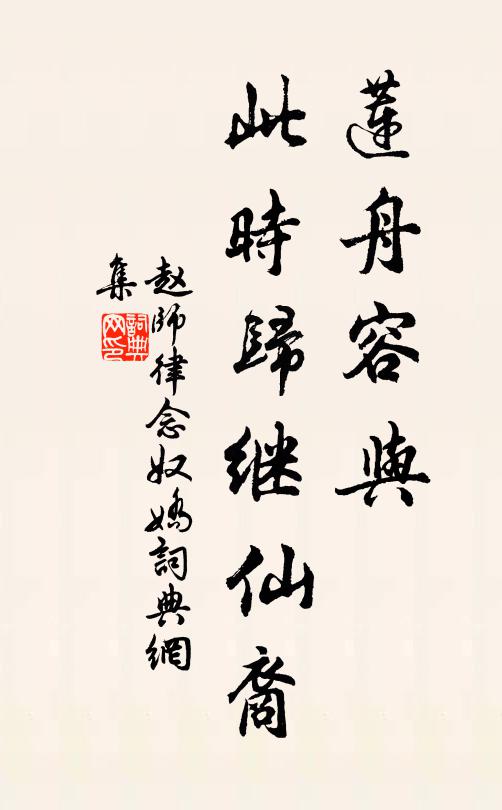 蓮舟容與
此時歸继仙裔
赵師律念奴嬌詞典網
集
詞典
网印